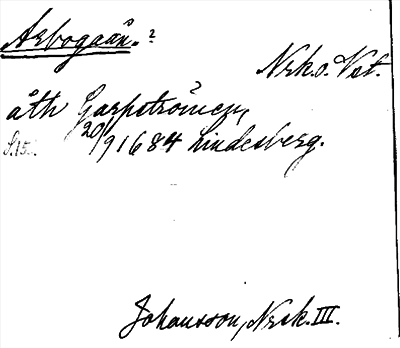 Arbogaån. ?
Nrk. o. Vst.
åtb Garpströmen,
S.15. 20/9 1684 Lindesberg.
Johansson, Nerk. III.